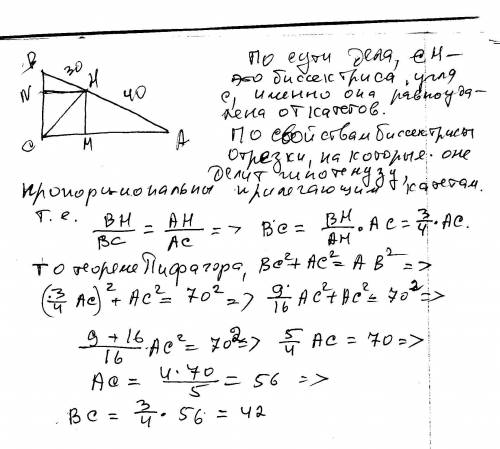 В
30
Н
N
40
С
М
А
По сути дела, СН –
это биссектриса угла
С, именно она равноуда-
лена от катетов.
По свойствам биссектрисы
отрезки, на которые она
делит гипотенузу,
пропорциональны прилегающим катетам.
Т.е. BH/BC = AH/AC => BC = BH/AH · AC = 3/4 · AC.
По теореме Пифагора, BC² + AC² = AB² =>
(3/4 AC)² + AC² = 70² => 9/16 AC² + AC² = 70² =>
9+16/16 · AC² = 70² => 5/4 AC = 70 =>
AC = 4·70/5 = 56 =>
BC = 3/4 · 56 = 42